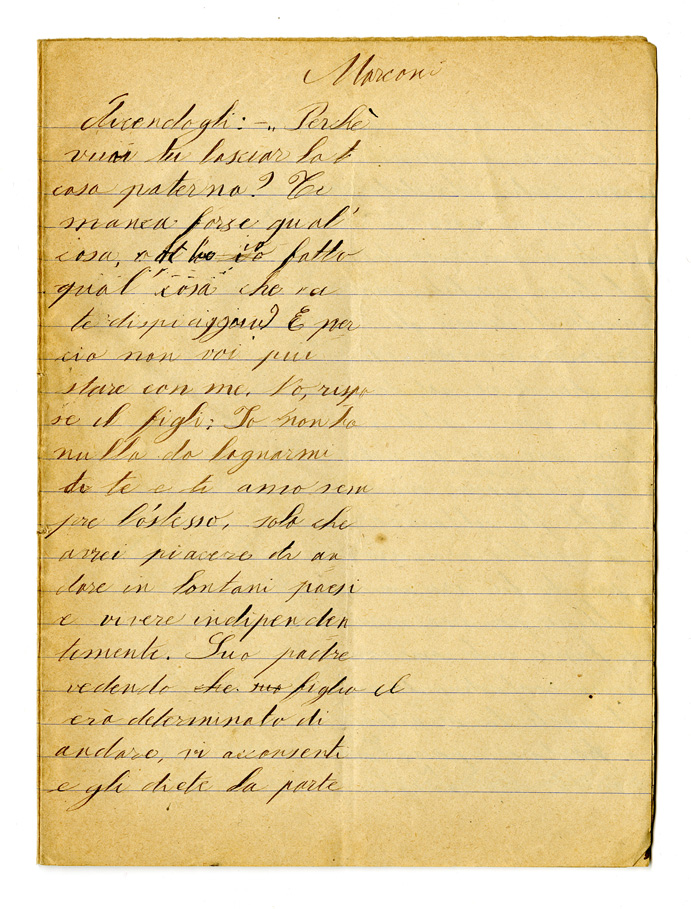 Marconi
dicendogli: -„ Perchè
vuoi tu lasciar la
casa paterna? Ti
manca forse qual'
cosa, o ho io fatto
qual'cosa che
te dispiaccia? E per
cio non voi piu
stare con me. No, rispo
se il figli: Io non ho
nulla da lagnarmi
di te e ti amo sem
pre lo stesso, solo che
avrei piacere di an
dare in lontani paesi
e vivere indipenden
temente. Suo padre
vedendo che suo figlio el
era determinato di
andare, vi acconsenti
e gli diete la parte